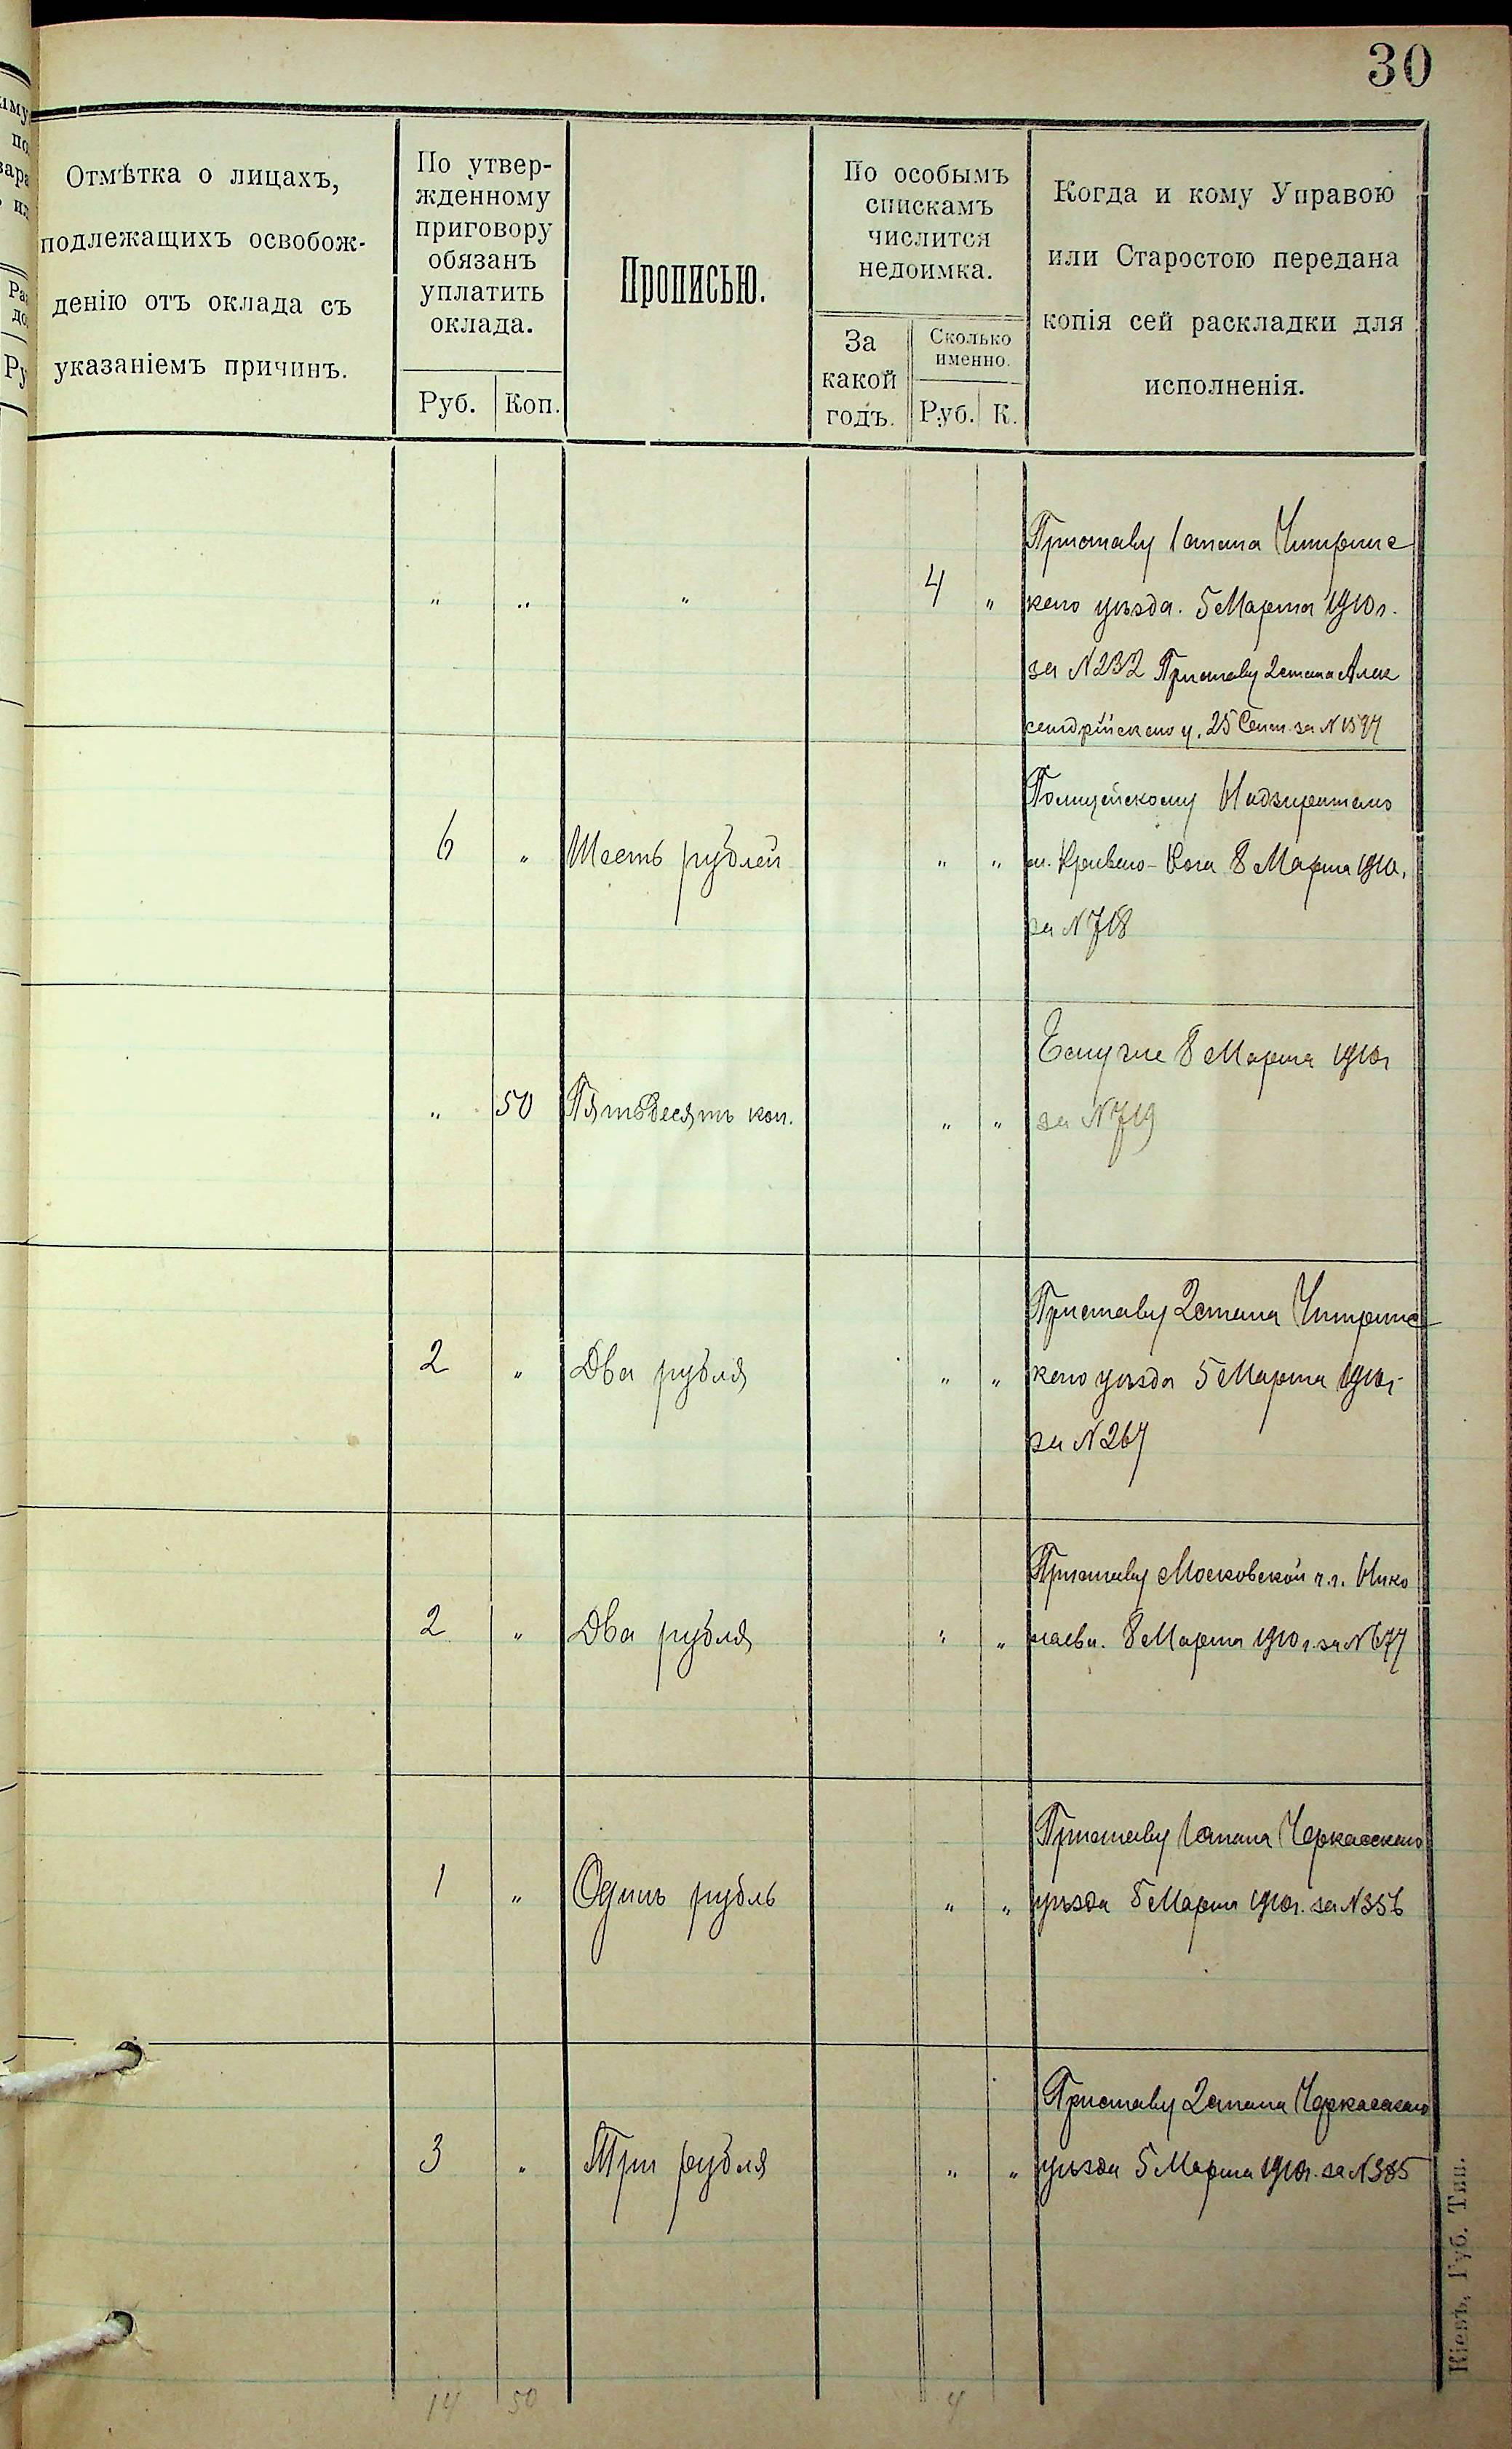 30
Отмѣтка о лицахъ,
подлежащихъ освобож-
денію отъ оклада съ
указаніемъ причинъ.
По утвер-
жденному
приговору
обязанъ
уплатить
оклада.
Руб. Коп.
Прописью.
По особымъ
спискамъ
числится
недоимка.
За
какой
годъ.
Сколько
именно.
Руб. К.
Когда и кому Управою
или Старостою передана
копія сей раскладки для
исполненія.
Приставу 1 стана Чигринс
" " " 4 " каго уѣзда. 5 Марта 1910 г.
за N 232 Приставу 2 стана Алек
сандрійскаго у. 25 Сент. за N 1597
Полицейскому Надзирателю
6 " Шесть рублей " " м. Криваго-Рога 8 Марта 1910.
за N 718
Ему же 8 Марта 1910 г
" 50 Пятьдесятъ коп. " " за N 719
Приставу 2 стана Чигринс
2 " Два рубля " " каго уѣзда 5 Марта 1910 г.
за N 267
Приставу Московской ч. г. Нико
2 " Два рубля " " лаева. 8 Марта 1910 г. за N 677
Приставу 1 стана Черкасскаго
1 " Одинъ рубль " " уѣзда 5 Марта 1910 г. за N 356
Приставу 2 стана Черкасскаго
3 " Три рубля " " уѣзда 5 Марта 1910 г. за N 385
14 50 4
Кіевъ, Губ. Тип.